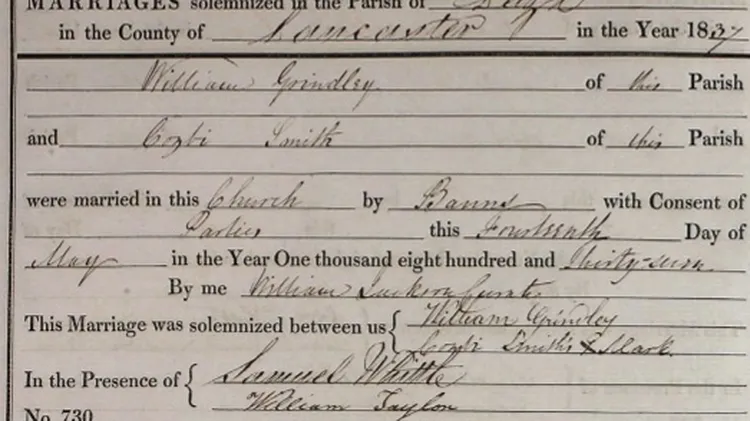 MARRIAGES solemnized in the Parish of Leigh
in the County of Lancaster in the Year 1837
William Grindley of this Parish
and Cozbi Smith of this Parish
were married in this Church by Banns with Consent of
Parties this Fourteenth Day of
May in the Year One thousand eight hundred and Thirty-seven
By me William Jackson Curate
This Marriage was solemnized between us { William Grindley
Cozbi Smith's X Mark
In the Presence of { Samuel Whittle
William Taylor
No. 730